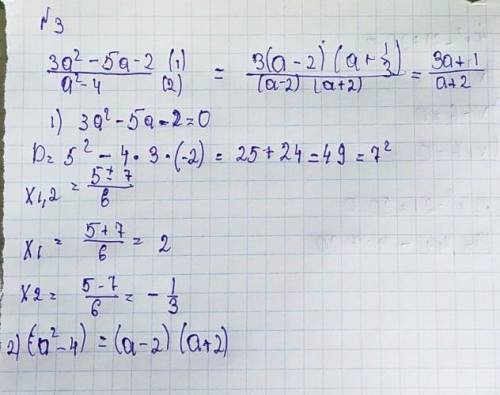 №3
(3a² - 5a - 2 (1))/(a² - 4 (2)) = (3(a - 2)(a + 1/3))/((a-2) (a+2)) = (3a + 1)/(a+2)
1) 3a² - 5a - 2 = 0
D = 5² - 4 · 3 · (-2) = 25 + 24 = 49 = 7²
x1,2 = (5 ± 7)/6
x1 = (5 + 7)/6 = 2
x2 = (5 - 7)/6 = - 1/3
2) (a² - 4) = (a - 2) (a + 2)